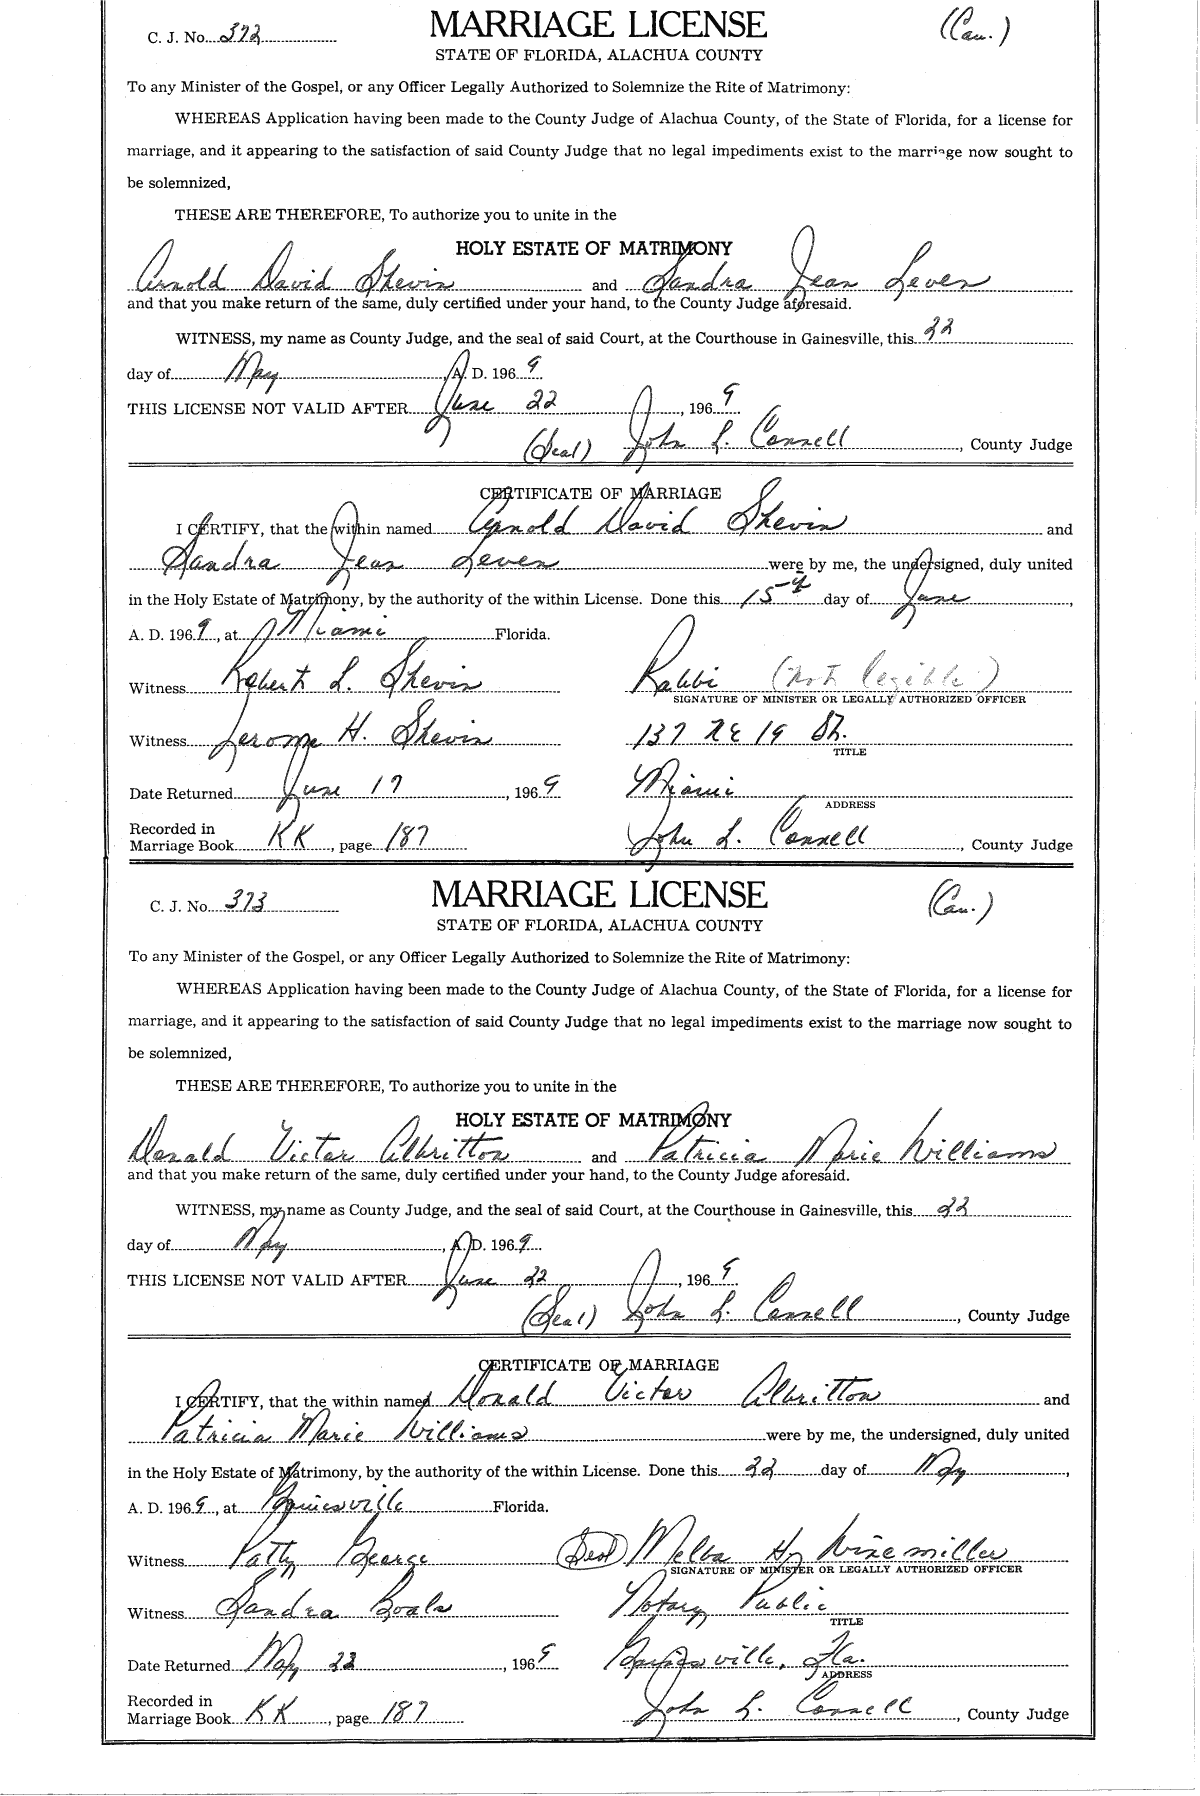 C. J. No. 372 MARRIAGE LICENSE (Cau.)
STATE OF FLORIDA, ALACHUA COUNTY
To any Minister of the Gospel, or any Officer Legally Authorized to Solemnize the Rite of Matrimony:
WHEREAS Application having been made to the County Judge of Alachua County, of the State of Florida, for a license for
marriage, and it appearing to the satisfaction of said County Judge that no legal impediments exist to the marriage now sought to
be solemnized,
THESE ARE THEREFORE, To authorize you to unite in the
HOLY ESTATE OF MATRIMONY
Arnold David Shevin and Sandra Jean Leven
and that you make return of the same, duly certified under your hand, to the County Judge aforesaid.
WITNESS, my name as County Judge, and the seal of said Court, at the Courthouse in Gainesville, this 22
day of May, A. D. 1969
THIS LICENSE NOT VALID AFTER June 22, 1969
(Seal) John L. Connell, County Judge
CERTIFICATE OF MARRIAGE
I CERTIFY, that the within named Arnold David Shevin and
Sandra Jean Leven were by me, the undersigned, duly united
in the Holy Estate of Matrimony, by the authority of the within License. Done this 15th day of June,
A. D. 1969, at Miami Florida.
Witness Robert L. Shevin Rabbi (not legible)
SIGNATURE OF MINISTER OR LEGALLY AUTHORIZED OFFICER
Witness Jerome H. Shevin 137 NE 19 St.
TITLE
Date Returned June 17, 1969 Miami
ADDRESS
Recorded in
Marriage Book KK, page 187 John L. Connell, County Judge
C. J. No. 373 MARRIAGE LICENSE (Cau.)
STATE OF FLORIDA, ALACHUA COUNTY
To any Minister of the Gospel, or any Officer Legally Authorized to Solemnize the Rite of Matrimony:
WHEREAS Application having been made to the County Judge of Alachua County, of the State of Florida, for a license for
marriage, and it appearing to the satisfaction of said County Judge that no legal impediments exist to the marriage now sought to
be solemnized,
THESE ARE THEREFORE, To authorize you to unite in the
HOLY ESTATE OF MATRIMONY
Donald Victor Albritton and Patricia Marie Williams
and that you make return of the same, duly certified under your hand, to the County Judge aforesaid.
WITNESS, my name as County Judge, and the seal of said Court, at the Courthouse in Gainesville, this 22
day of May, A. D. 1969
THIS LICENSE NOT VALID AFTER June 22, 1969
(Seal) John L. Connell, County Judge
CERTIFICATE OF MARRIAGE
I CERTIFY, that the within named Donald Victor Albritton and
Patricia Marie Williams were by me, the undersigned, duly united
in the Holy Estate of Matrimony, by the authority of the within License. Done this 22 day of May,
A. D. 1969, at Gainesville Florida.
Witness Patty George (Seal) Melba H. Winemiller
SIGNATURE OF MINISTER OR LEGALLY AUTHORIZED OFFICER
Witness Sandra Boals Notary Public
TITLE
Date Returned May 22, 1969 Gainesville, Fla.
ADDRESS
Recorded in
Marriage Book KK, page 187 John L. Connell, County Judge